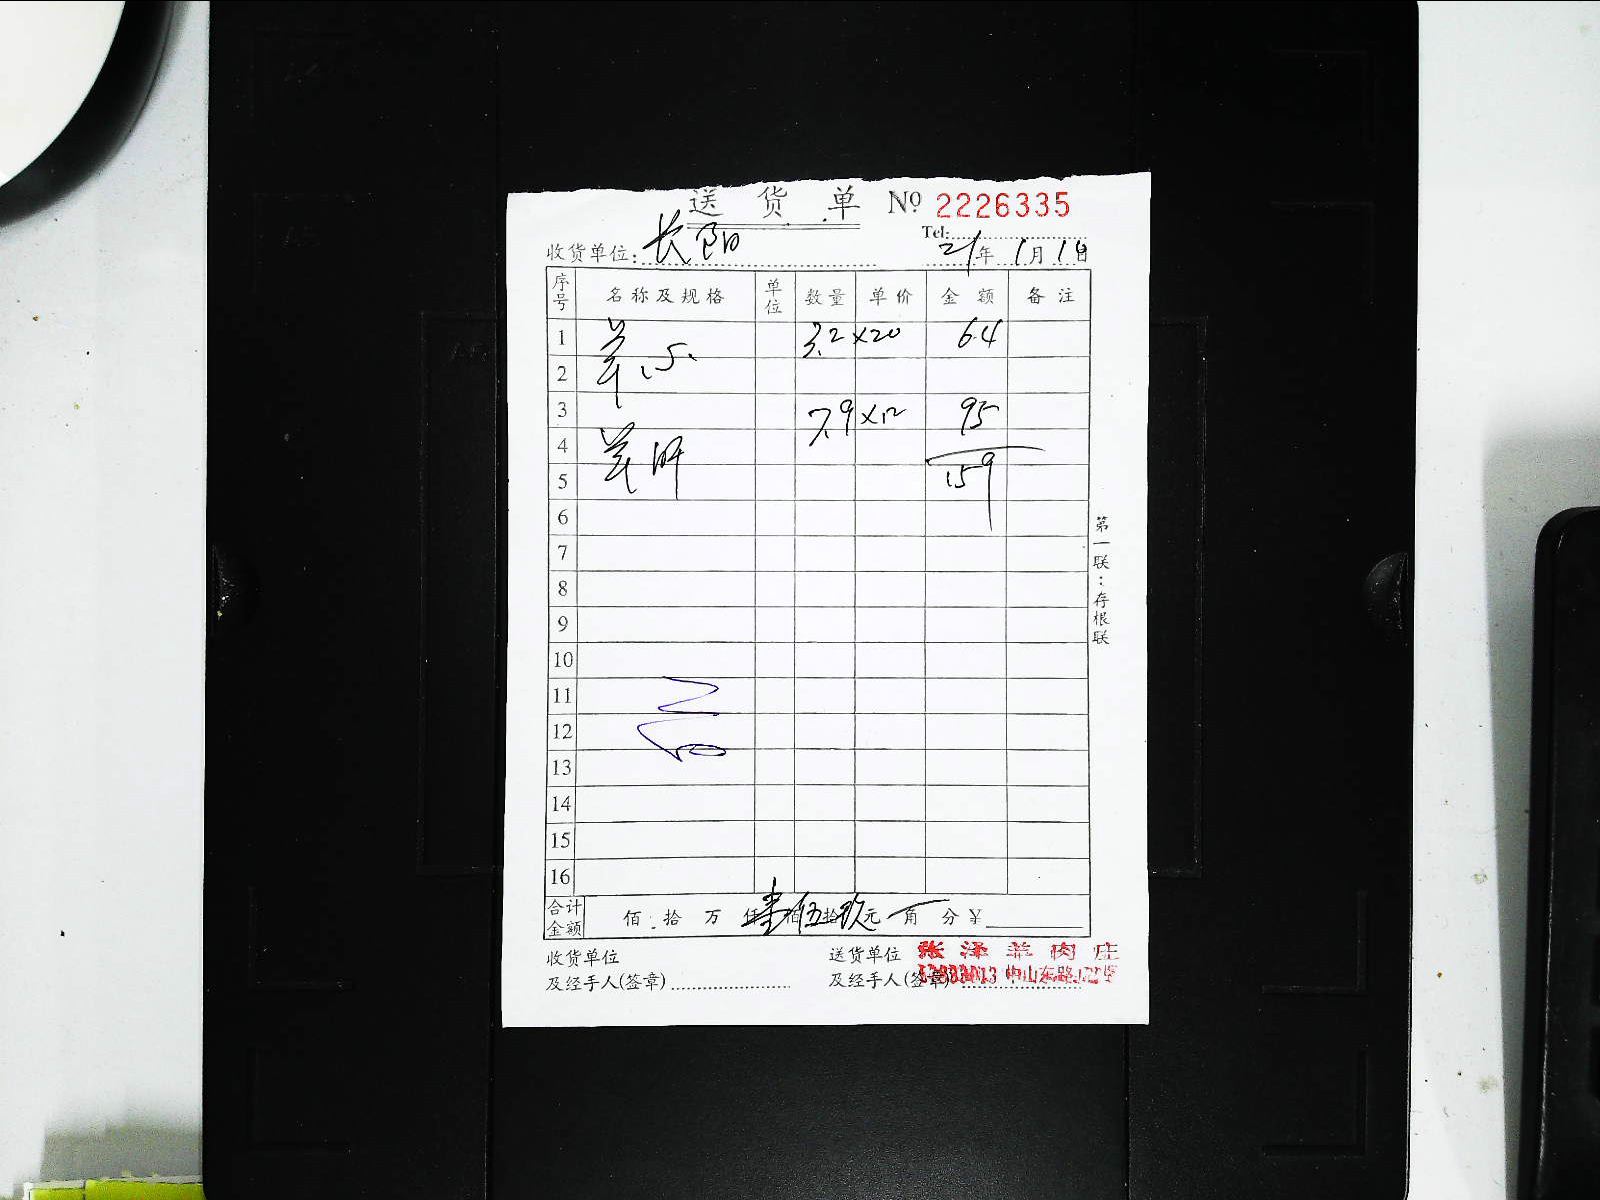 送货单 № 2226335
Tel:
收货单位: 长阳 21年1月1日
序号 名称及规格 单位 数量 单价 金额 备注
1 羊心 3.2 ×20 64
2
3 7.9 ×12 95
4 羊肝
5 159
6
7
8
9
10
11
12
13
14
15
16
合计金额 佰拾万仟壹佰伍拾玖元角分¥
收货单位 送货单位 张泽羊肉庄
及经手人(签章) 及经手人(签章) 中山东路
第一联:存根联